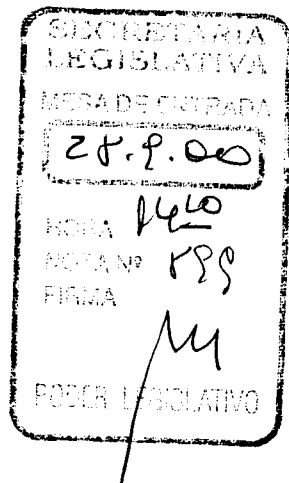 SECRETARIA
LEGISLATIVA
MESA DE ENTRADA
28.9.00
HORA 14 10
NOTA Nº 899
FIRMA
PODER LEGISLATIVO